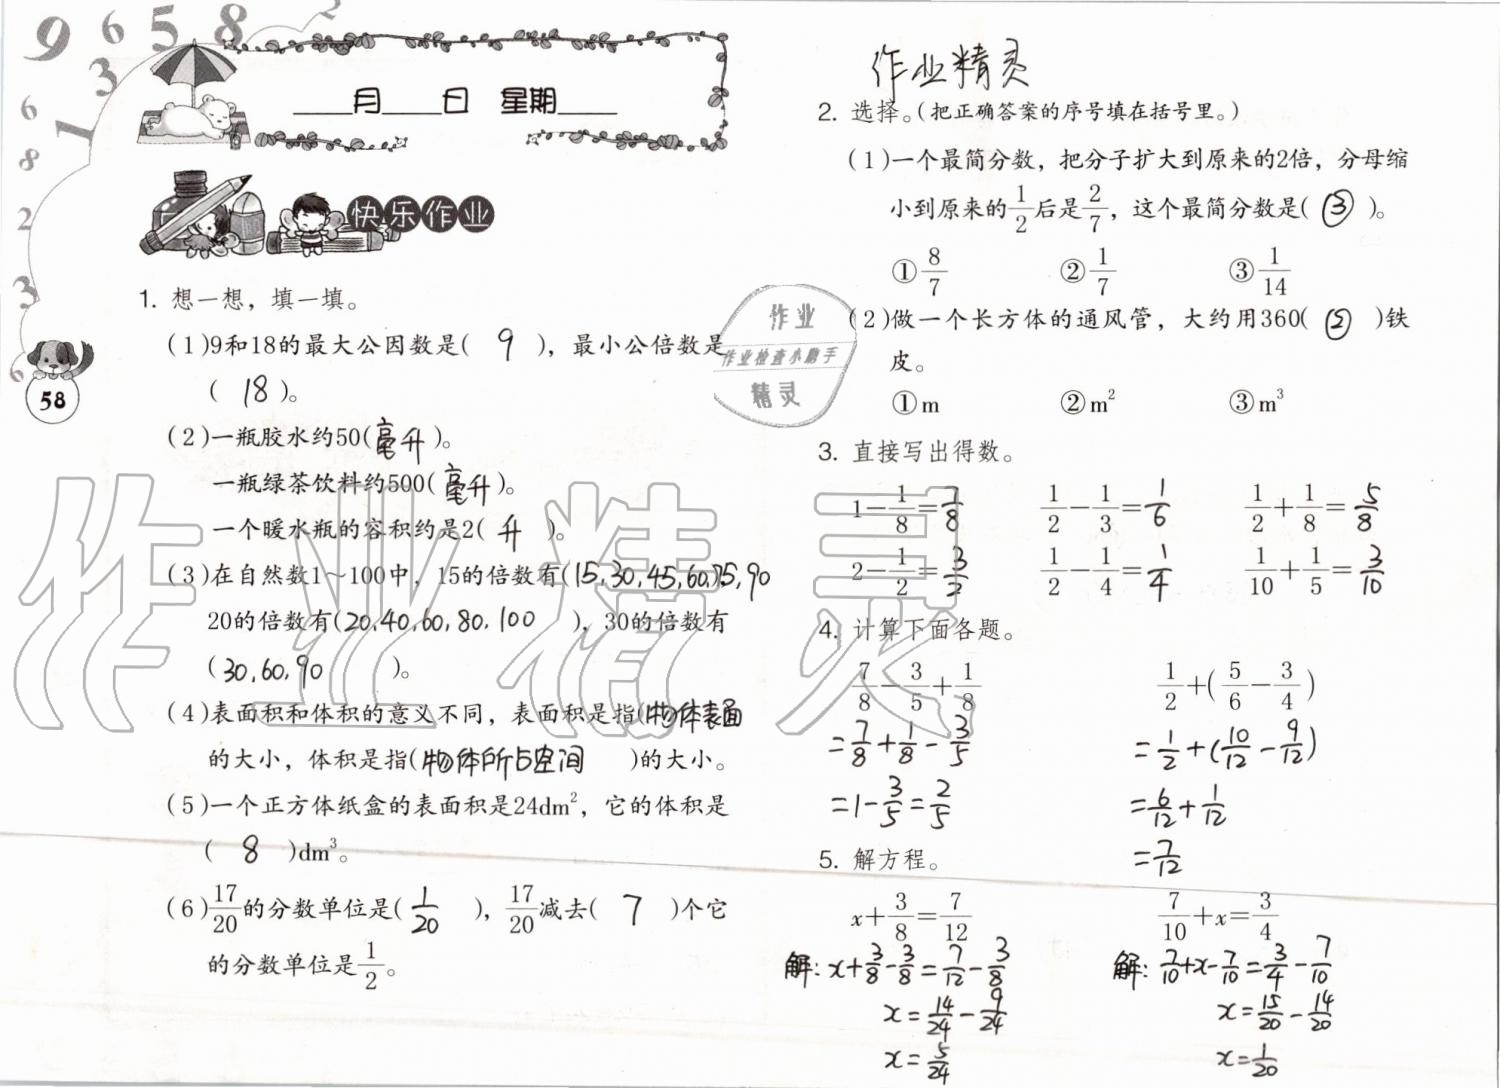 9 6 5 8 2
3
6
1
8
2
3
6
58
____月____日 星期____
快乐作业
1. 想一想，填一填。
(1)9和18的最大公因数是( 9 )，最小公倍数是
( 18 )。
(2)一瓶胶水约50(毫升)。
一瓶绿茶饮料约500(毫升)。
一个暖水瓶的容积约是2( 升 )。
(3)在自然数1～100中，15的倍数有(15,30,45,60,75,90
20的倍数有(20,40,60,80,100 )，30的倍数有
(30,60,90 )。
(4)表面积和体积的意义不同，表面积是指(物体表面
的大小，体积是指(物体所占空间 )的大小。
(5)一个正方体纸盒的表面积是24dm²，它的体积是
( 8 )dm³。
(6)17/20的分数单位是( 1/20 )，17/20减去( 7 )个它
的分数单位是1/2。
作业精灵
2. 选择。(把正确答案的序号填在括号里。)
(1)一个最简分数，把分子扩大到原来的2倍，分母缩
小到原来的1/2后是2/7，这个最简分数是( ③ )。
①8/7 ②1/7 ③1/14
(2)做一个长方体的通风管，大约用360( ② )铁
皮。
①m ②m² ③m³
3. 直接写出得数。
1－1/8=7/8 1/2－1/3=1/6 1/2+1/8=5/8
2－1/2=3/2 1/2－1/4=1/4 1/10+1/5=3/10
4. 计算下面各题。
7/8－3/5+1/8 1/2+(5/6－3/4)
=7/8+1/8-3/5 =1/2+(10/12-9/12)
=1-3/5=2/5 =6/12+1/12
=7/12
5. 解方程。
x+3/8=7/12 7/10+x=3/4
解: x+3/8-3/8=7/12-3/8 解: 7/10+x-7/10=3/4-7/10
x=14/24-9/24 x=15/20-14/20
x=5/24 x=1/20
作业
作业检查小助手
精灵
作业精灵